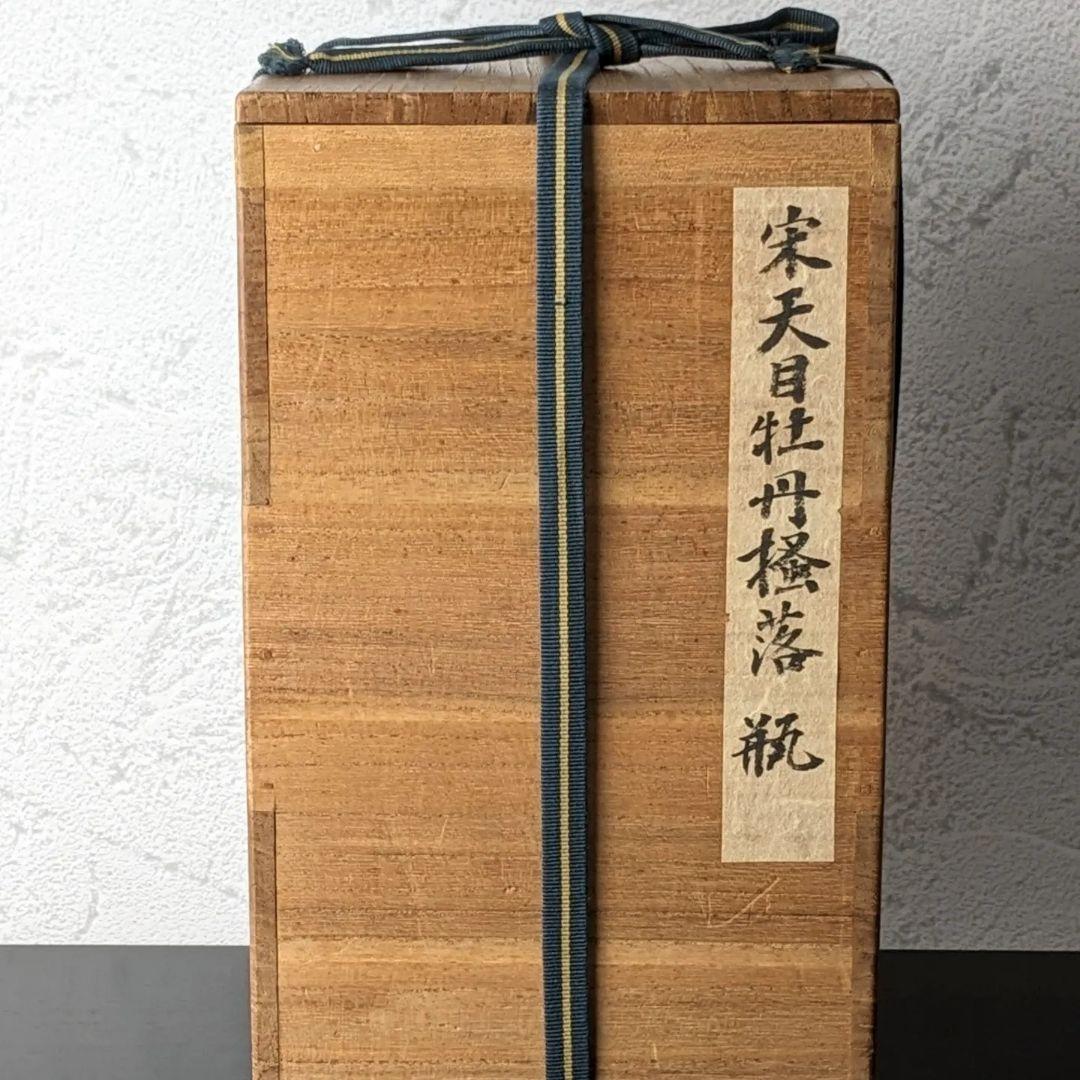 宋天目牡丹掻落 瓶